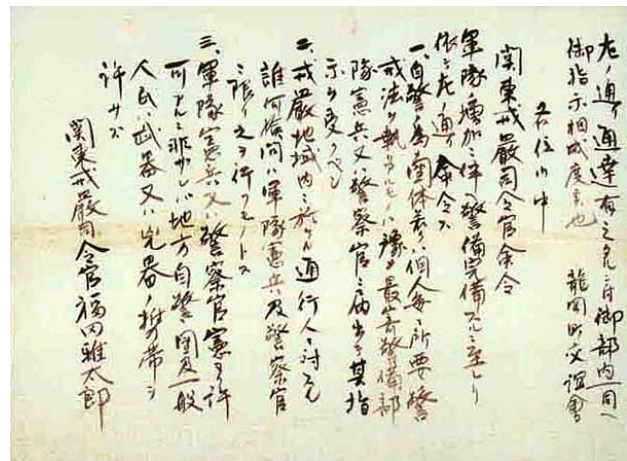 左ノ通リ通達有之候ニ付御部内一同ヘ
御指示相成度候也
龍岡町交誼會
各位御中
関東戒嚴司令官命令
軍隊増加ニ伴ヒ警備完備スルニ至レリ
依テ左ノ通リ命令ス
一、自警ノ為團体若クハ個人毎ニ所要警
戒法ヲ執ルモノハ豫メ最寄警備部
隊憲兵又ハ警察官ニ届出テ其指
示ヲ受クベシ
二、戒嚴地域内ニ於ケル通行人ニ対スル
誰何検問ハ軍隊憲兵及警察官
ニ限リ之ヲ行フモノトス
三、軍隊憲兵又ハ警察官憲ヨリ許
可アルニ非ザレバ地方自警團及一般
人民ハ武器又ハ兇器ノ携帯ヲ
許サズ
関東戒嚴司令官福田雅太郎